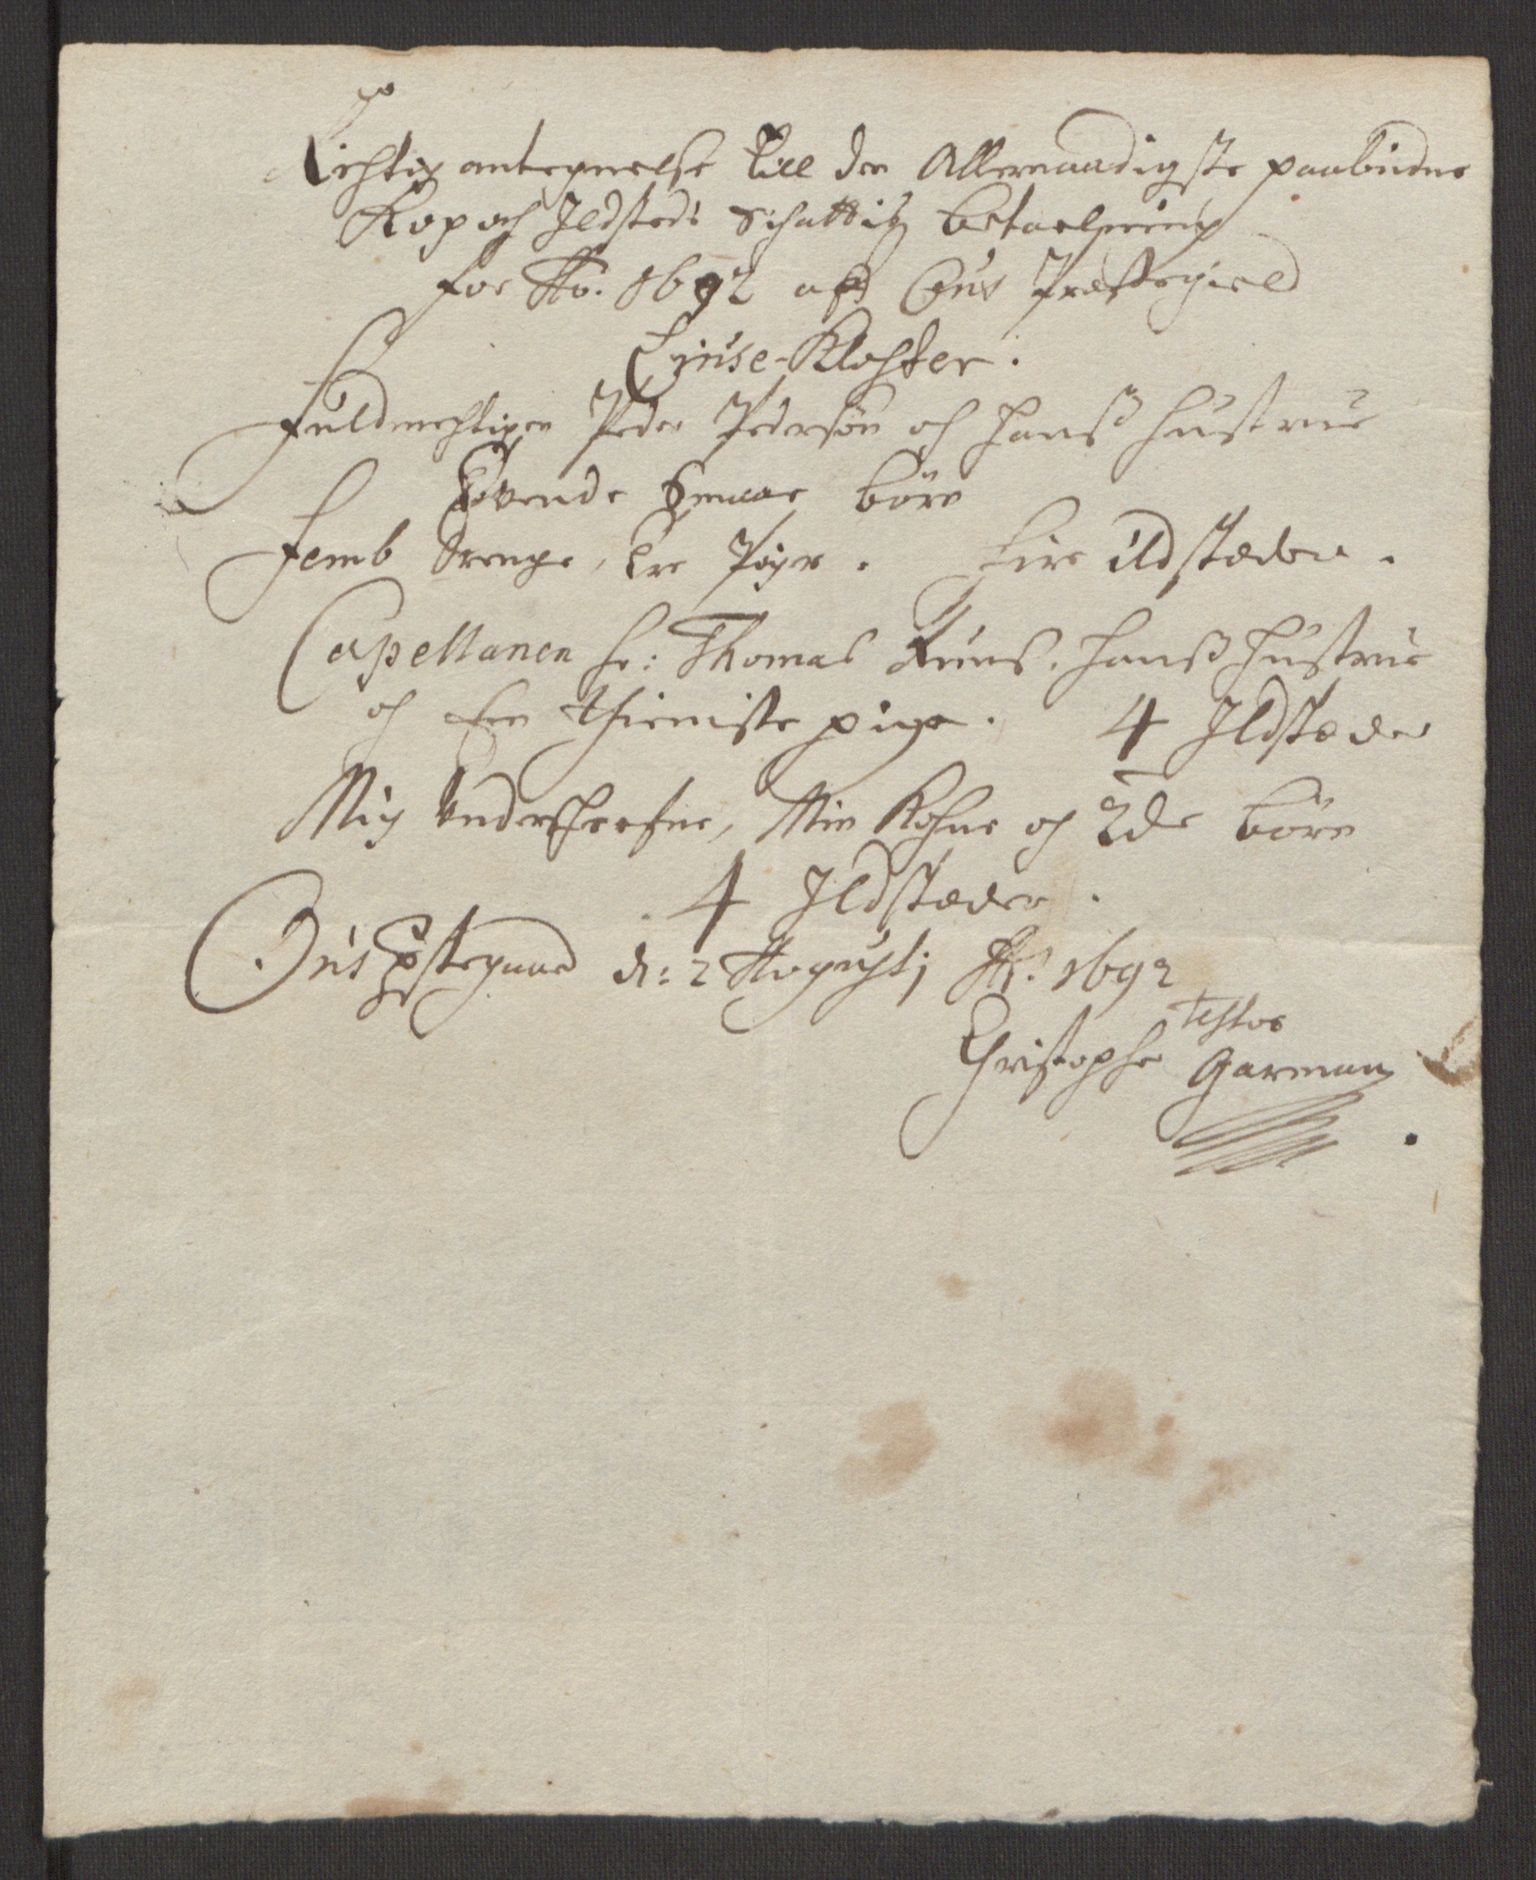 Richtig antegnelse till den Allernaadigste paabudne
Kop och Ildsteds Schattis betaelning
for Ao. 1692 aff Ous Præstegield
Liuse-Kloster.
Fuldmechtigen Peder Pedersøn och hanß hustrue
børn
Femb Drenge, tre Piger. Fire ildstæder.
Capellanen hr: Thomas hanß hustrue
och een thieniste pige. 4 Ildstæder
Mig Underschrefne, Min Kohne och 2de børn
4 Ildstæder.
Ous Pstegaard d: 2 Augustj Ao. 1692
Testor
Christopher Garman